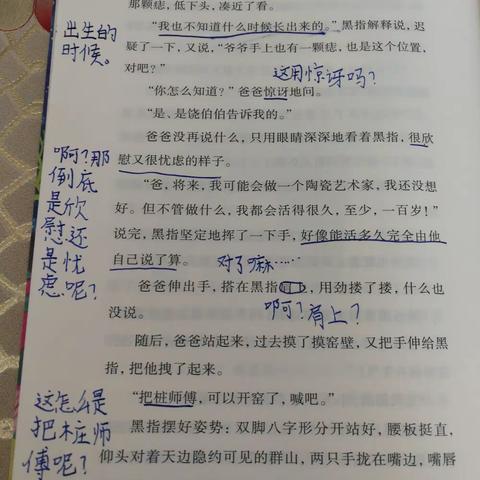 那颗痣，低下头，凑近了看。
出生的
时候。
“我也不知道什么时候长出来的。”黑指解释说，迟
疑了一下，又说，“爷爷手上也有一颗痣，也是这个位置，
对吧？”
这用惊讶吗？
“你怎么知道？”爸爸惊讶地问。
“是、是饶伯伯告诉我的。”
爸爸没再说什么，只用眼睛深深地看着黑指，很欣
慰又很忧虑的样子。
啊？那
倒底
是欣
慰还
是忧
虑呢？
“爸，将来，我可能会做一个陶瓷艺术家，我还没想
好。但不管做什么，我都会活得很久，至少，一百岁！”
说完，黑指坚定地挥了一下手，好像能活多久完全由他
自己说了算。
对了嘛……
爸爸伸出手，搭在黑指，用劲搂了搂，什么也
没说。
啊？肩上？
随后，爸爸站起来，过去摸了摸窑壁，又把手伸给黑
指，把他拽了起来。
“把桩师傅，可以开窑了，喊吧。”
这怎么是
把桩师
傅呢？
黑指摆好姿势：双脚八字形分开站好，腰板挺直，
仰头对着天边隐约可见的群山，两只手拢在嘴边，嘴唇